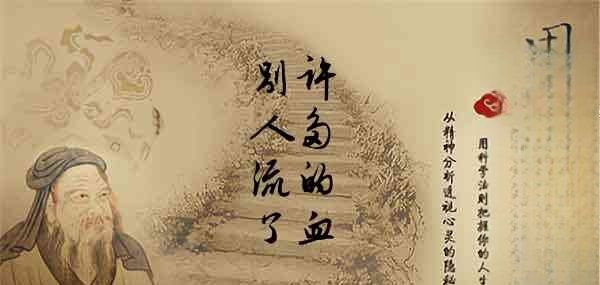 用科学法则把握你的人生
从精神分析透视心灵的隐秘
许多的血
别人流了